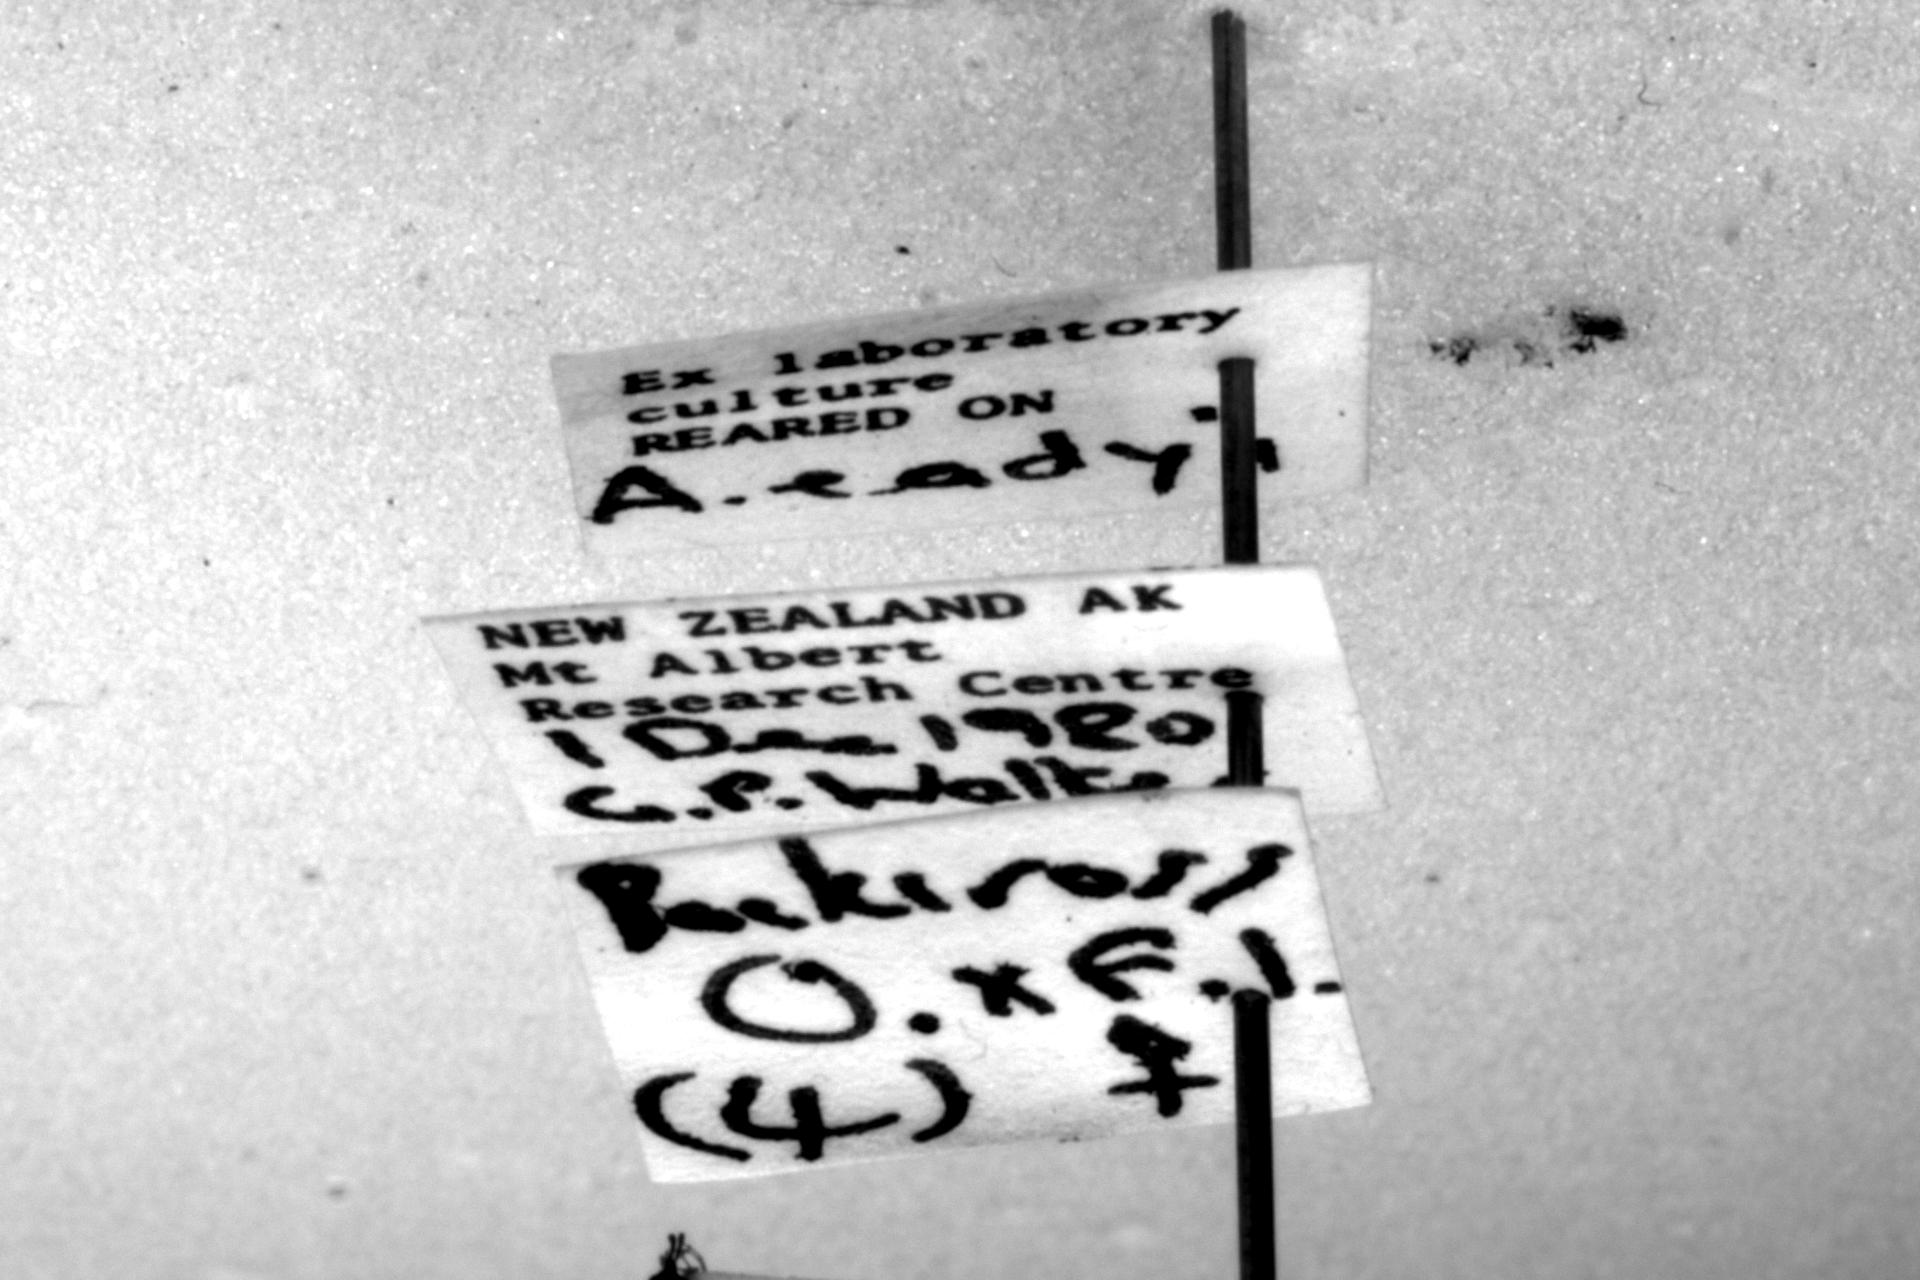 Ex laboratory
culture
REARED ON
A. eadyi
NEW ZEALAND AK
Mt Albert
Research Centre
1 Dec 1980
G.P. Walker
Backcross
O. x F.1.
(4) ♀